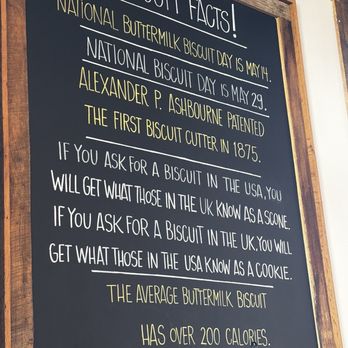 FACTS!
NATIONAL BUTTERMILK BISCUIT DAY IS MAY 14.
NATIONAL BISCUIT DAY IS MAY 29.
ALEXANDER P. ASHBOURNE PATENTED
THE FIRST BISCUIT CUTTER IN 1875.
IF YOU ASK FOR A BISCUIT IN THE USA, YOU
WILL GET WHAT THOSE IN THE UK KNOW AS A SCONE.
IF YOU ASK FOR A BISCUIT IN THE UK, YOU WILL
GET WHAT THOSE IN THE USA KNOW AS A COOKIE.
THE AVERAGE BUTTERMILK BISCUIT
HAS OVER 200 CALORIES.